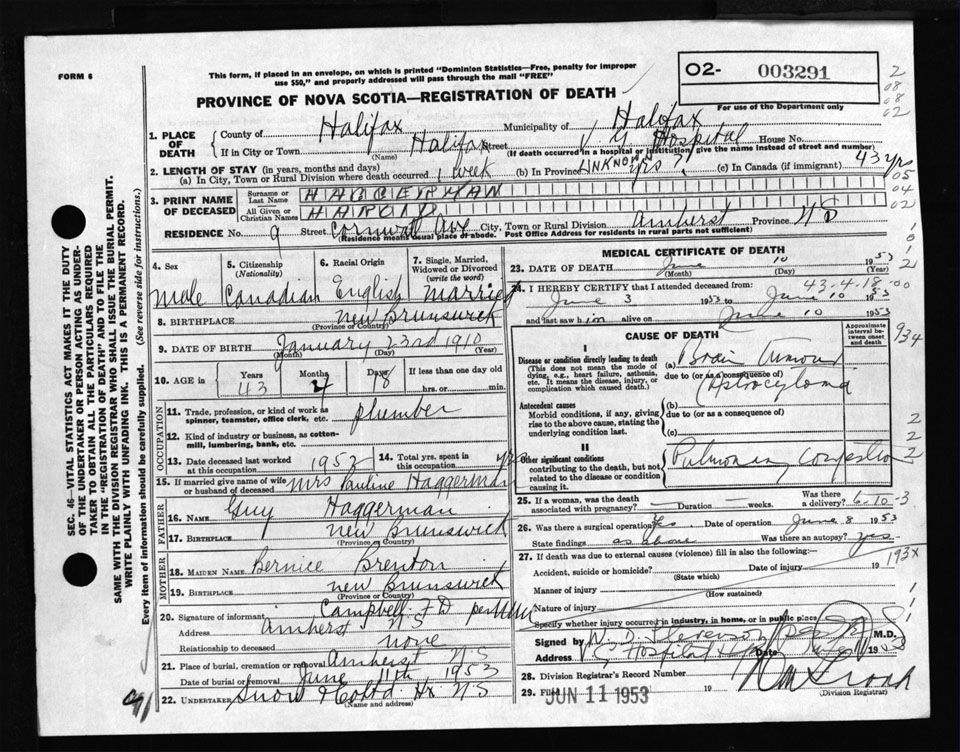 FORM 6
This form, if placed in an envelope, on which is printed "Dominion Statistics—Free, penalty for improper
use $50," and properly addressed will pass through the mail "FREE"
PROVINCE OF NOVA SCOTIA—REGISTRATION OF DEATH
02- 003291
For use of the Department only
2
08
08
02
1. PLACE OF DEATH
County of Halifax Municipality of Halifax
If in City or Town Halifax (Name) Street V G Hospital House No.
(If death occurred in a hospital or institution, give the name instead of street and number)
2. LENGTH OF STAY (in years, months and days)
(a) In City, Town or Rural Division where death occurred 1 week (b) In Province UNKNOWN yrs ? (c) In Canada (if immigrant) 43 yrs
05
04
02
3. PRINT NAME OF DECEASED
Surname or Last Name HAGGERMAN
All Given or Christian Names HAROLD
RESIDENCE No. 9 Street Cornwall Ave City, Town or Rural Division Amherst Province N S
(Residence means usual place of abode. Post Office Address for residents in rural parts not sufficient)
4. Sex Male
5. Citizenship (Nationality) Canadian
6. Racial Origin English
7. Single, Married, Widowed or Divorced (write the word) Married
8. BIRTHPLACE New Brunswick
(Province or Country)
9. DATE OF BIRTH January 23rd 1910
(Month) (Day) (Year)
10. AGE in Years 43 Months 4 Days 18 If less than one day old
hrs. or min.
OCCUPATION
11. Trade, profession, or kind of work as spinner, teamster, office clerk, etc. plumber
12. Kind of industry or business, as cotton-mill, lumbering, bank, etc.
13. Date deceased last worked at this occupation 1953
14. Total yrs. spent in this occupation yrs
15. If married give name of wife or husband of deceased Mrs Pauline Haggerman
FATHER
16. NAME Guy Haggerman
17. BIRTHPLACE New Brunswick
(Province or Country)
MOTHER
18. MAIDEN NAME Bernice Brenton
19. BIRTHPLACE New Brunswick
(Province or Country)
20. Signature of informant Campbell F D
Address Amherst N S
Relationship to deceased none
21. Place of burial, cremation or removal Amherst N S
Date of burial or removal June 11th 1953
22. UNDERTAKER Snow & Co Ltd. Hx N S
(Name and address)
MEDICAL CERTIFICATE OF DEATH
23. DATE OF DEATH June 10 1953
(Month) (Day) (Year)
43-4-18
24. I HEREBY CERTIFY that I attended deceased from
June 3 1953 to June 10 1953
and last saw him alive on June 10 1953
CAUSE OF DEATH
Approximate interval between onset and death
934
I
Disease or condition directly leading to death
(This does not mean the mode of dying, e.g., heart failure, asthenia, etc. It means the disease, injury, or complication which caused death.)
(a) Brain Tumour
due to (or as a consequence of)
(Astrocytoma
Antecedent causes
Morbid conditions, if any, giving rise to the above cause, stating the underlying condition last.
(b)
due to (or as a consequence of)
(c)
II
Other significant conditions
contributing to the death, but not related to the disease or condition causing it.
Pulmonary Congestion
25. If a woman, was the death associated with pregnancy? Duration weeks. Was there a delivery? 6-10-3
26. Was there a surgical operation? Yes. Date of operation June 8 1953
State findings as above Was there an autopsy? yes
27. If death was due to external causes (violence) fill in also the following:—
193X
Accident, suicide or homicide? Date of injury 19
(State which)
Manner of injury
(How sustained)
Nature of injury
Specify whether injury occurred in industry, in home, or in public place
Signed by W. D. Stevenson M.D.
Address V G Hospital Date 1953
28. Division Registrar's Record Number
29. Filed JUN 11 1953 19
(Division Registrar)
SEC. 46—VITAL STATISTICS ACT MAKES IT THE DUTY
OF THE UNDERTAKER OR PERSON ACTING AS UNDERTAKER TO OBTAIN ALL THE PARTICULARS REQUIRED
IN THE "REGISTRATION OF DEATH" AND TO FILE THE
SAME WITH THE DIVISION REGISTRAR WHO SHALL ISSUE THE BURIAL PERMIT.
WRITE PLAINLY WITH UNFADING INK. THIS IS A PERMANENT RECORD.
Every item of information should be carefully supplied. (See reverse side for instructions.)